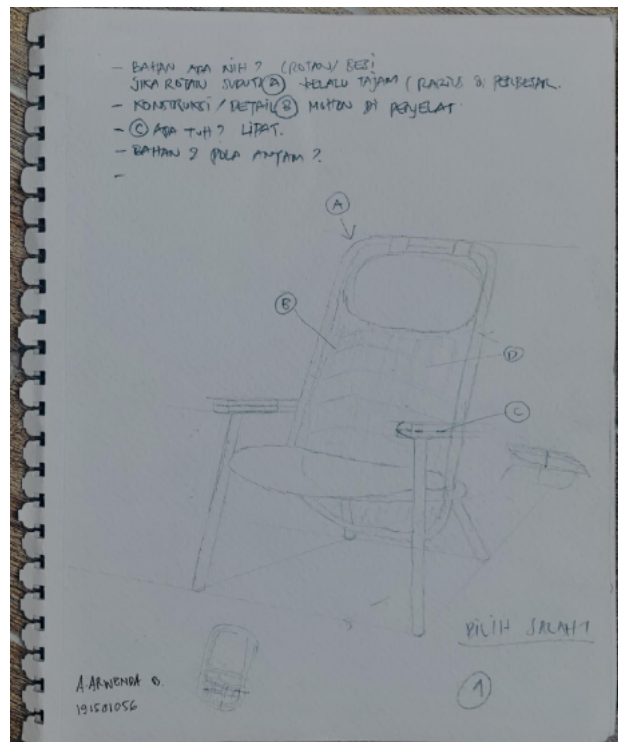 - BAHAN APA NIH? (ROTAN/ BESI
JIKA ROTAN SUDUT (A) TERLALU TAJAM (RADIUS DI PERBESAR.
- KONSTRUKSI / DETAIL (B) MOHON DI PERJELAS
- (C) APA TUH? LIPAT.
- BAHAN & POLA ANYAM?
-
A
B
D
C
PILIH SALAH 1
A. ARWENDA B.
191501056
1